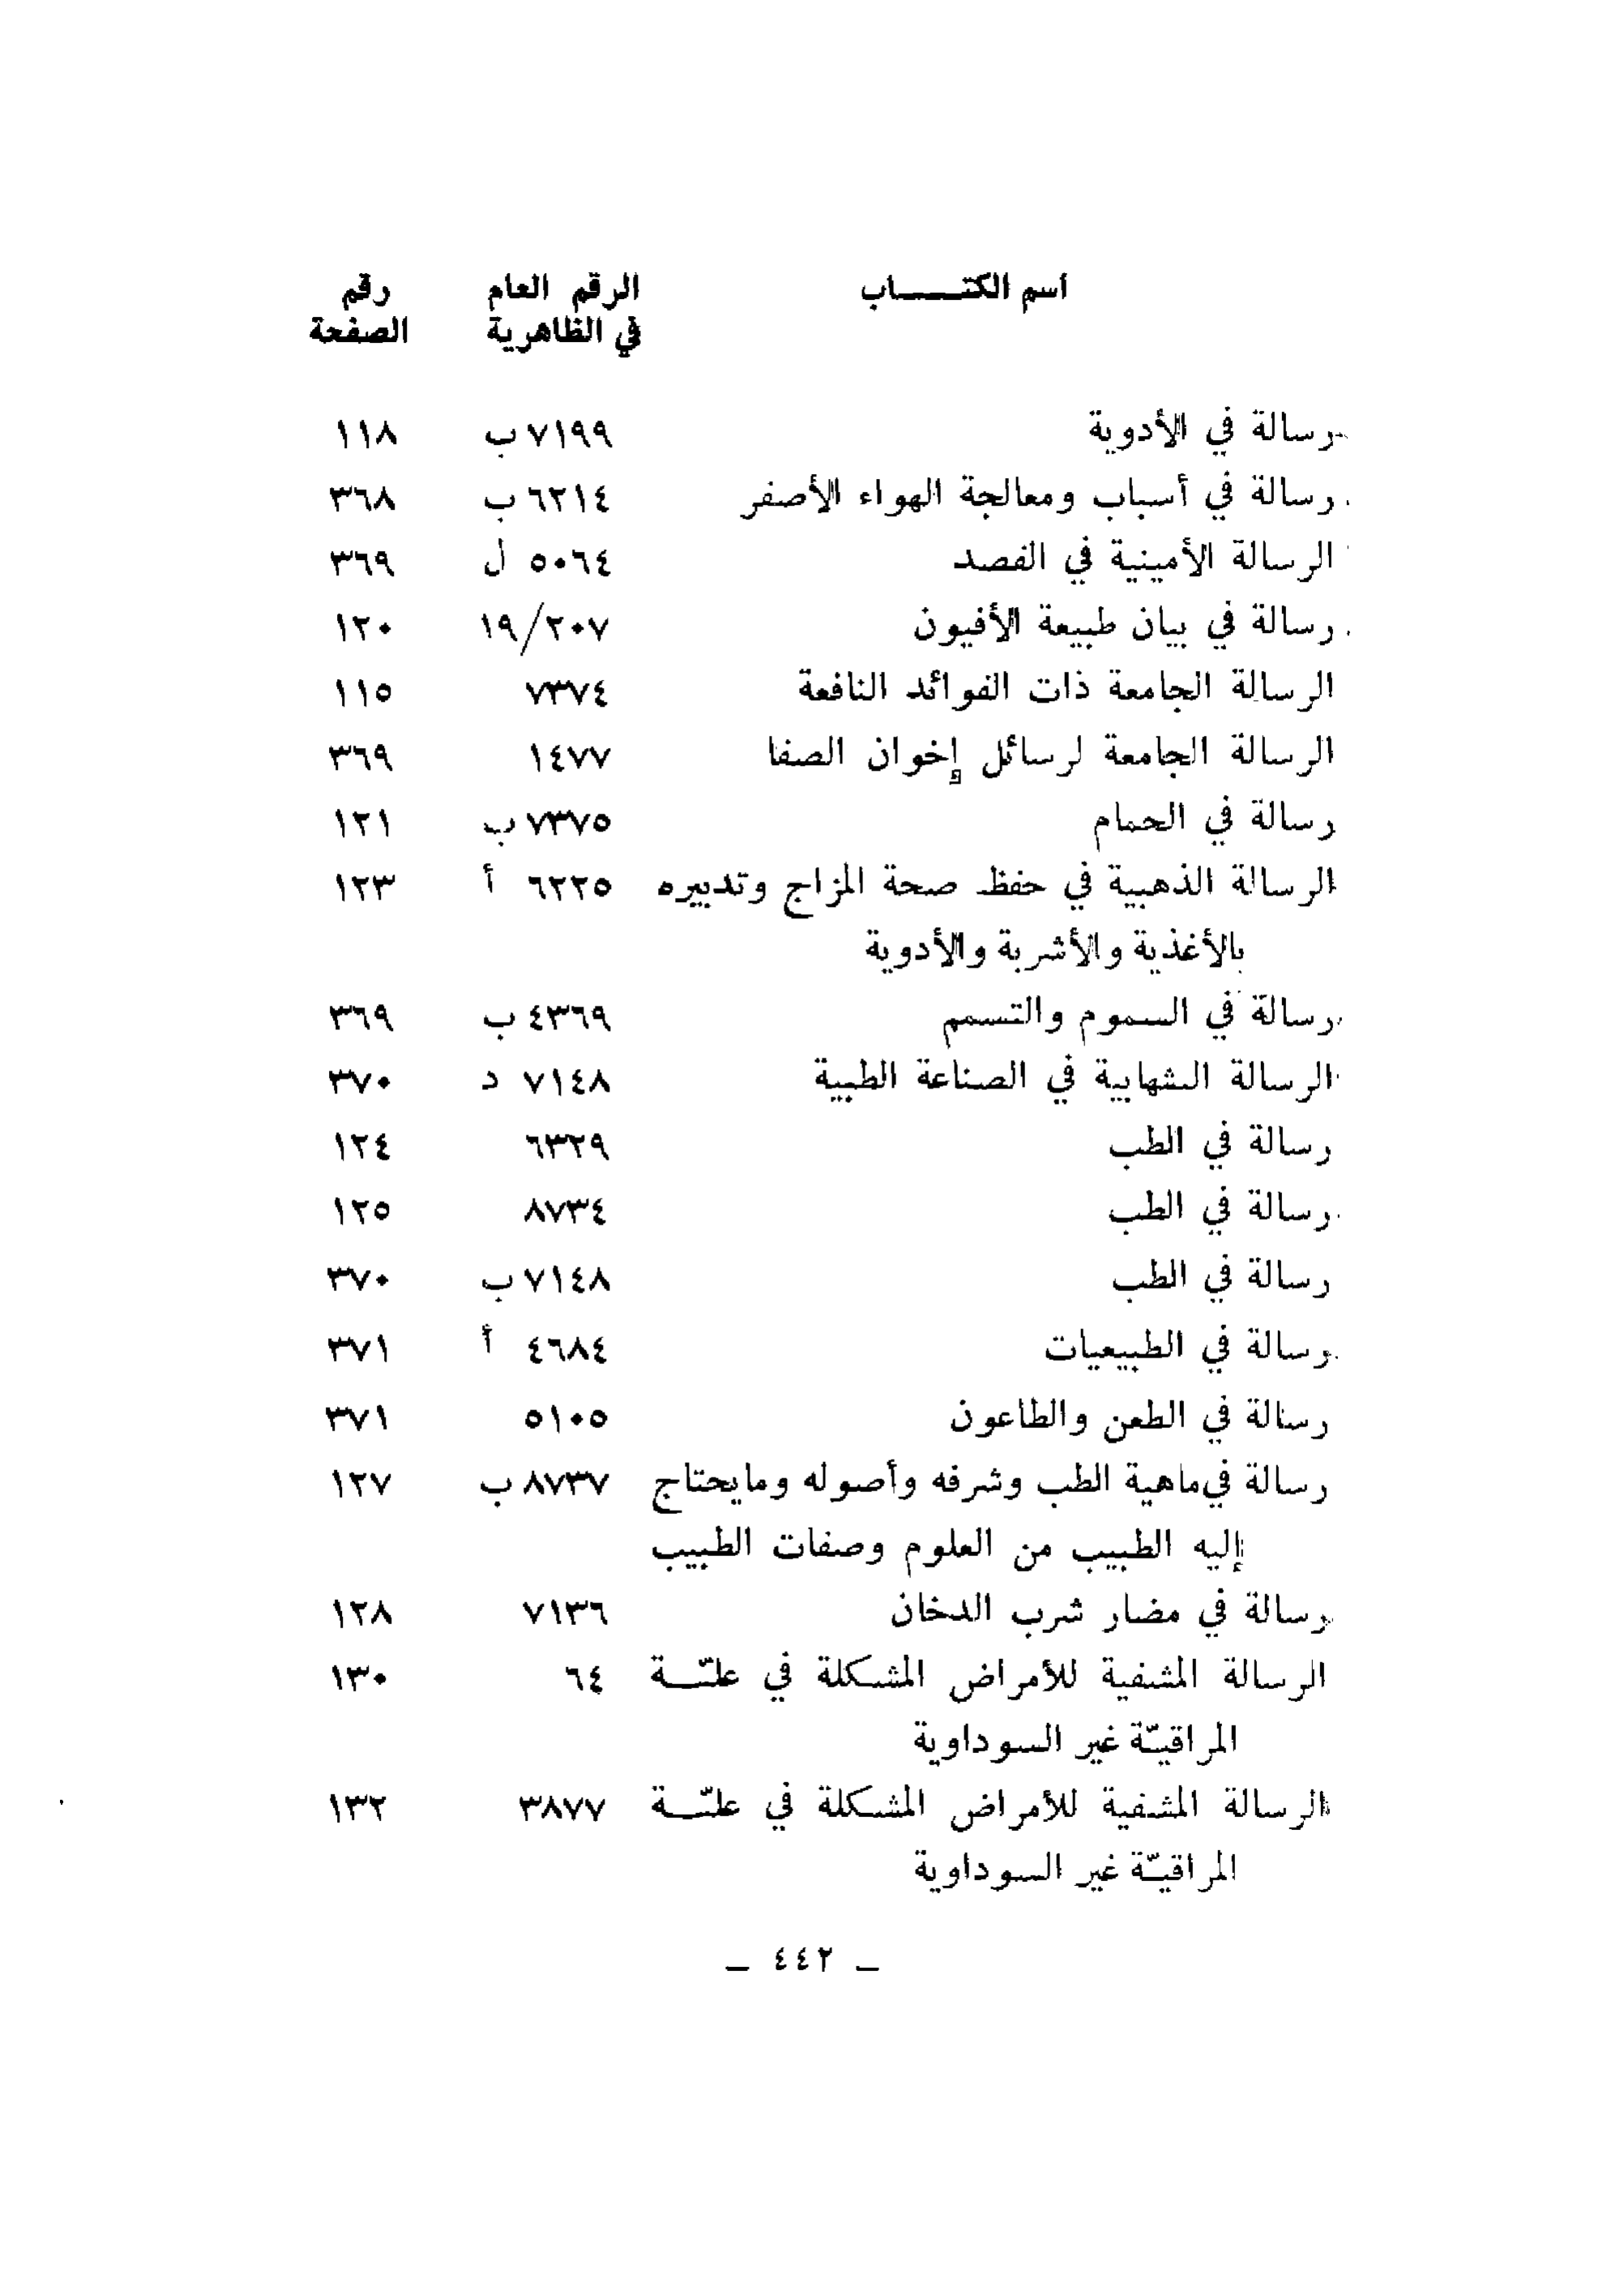 اسم الكتـــاب الرقم العام رقم
في الظاهرية الصفحة
رسالة في الأدوية ٧١٩٩ ب ١١٨
رسالة في أسباب ومعالجة الهواء الأصفر ٦٢١٤ ب ٣٦٨
الرسالة الأمينية في الفصد ٥٠٦٤ ل ٣٦٩
رسالة في بيان طبيعة الأفيون ١٩/٢٠٧ ١٢٠
الرسالة الجامعة ذات الفوائد النافعة ٧٣٧٤ ١١٥
الرسالة الجامعة لرسائل إخوان الصفا ١٤٧٧ ٣٦٩
رسالة في الحمام ٧٣٧٥ ب ١٢١
الرسالة الذهبية في حفظ صحة المزاج وتدبيره ٦٢٢٥ أ ١٢٣
بالأغذية والأشربة والأدوية
رسالة في السموم والتسمم ٤٣٦٩ ب ٣٦٩
الرسالة الشهابية في الصناعة الطبية ٧١٤٨ د ٣٧٠
رسالة في الطب ٦٣٢٩ ١٢٤
رسالة في الطب ٨٧٣٤ ١٢٥
رسالة في الطب ٧١٤٨ ب ٣٧٠
رسالة في الطبيعيات ٤٦٨٤ أ ٣٧١
رسالة في الطعن والطاعون ٥١٠٥ ٣٧١
رسالة في ماهية الطب وشرفه وأصوله ومايحتاج ٨٧٣٧ ب ١٢٧
إليه الطبيب من العلوم وصفات الطبيب
رسالة في مضار شرب الدخان ٧١٣٦ ١٢٨
الرسالة المشفية للأمراض المشكلة في علّـــة ٦٤ ١٣٠
المراقيّة غير السوداوية
الرسالة المشفية للأمراض المشكلة في علّـــة ٣٨٧٧ ١٣٢
المراقيّة غير السوداوية
– ٤٤٢ –